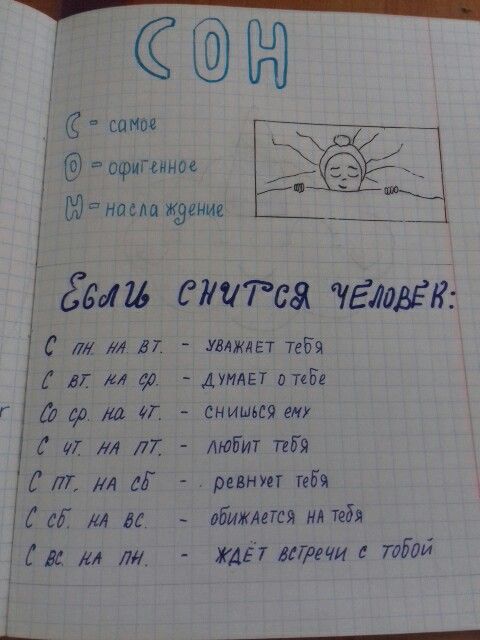 СОН
С - самое
О - офигенное
Н - наслаждение
Если снится человек:
С пн. на вт. - уважает тебя
С вт. на ср. - думает о тебе
Со ср. на чт. - снишься ему
С чт. на пт. - любит тебя
С пт. на сб - ревнует тебя
С сб. на вс. - обижается на тебя
С вс. на пн. - ждёт встречи с тобой